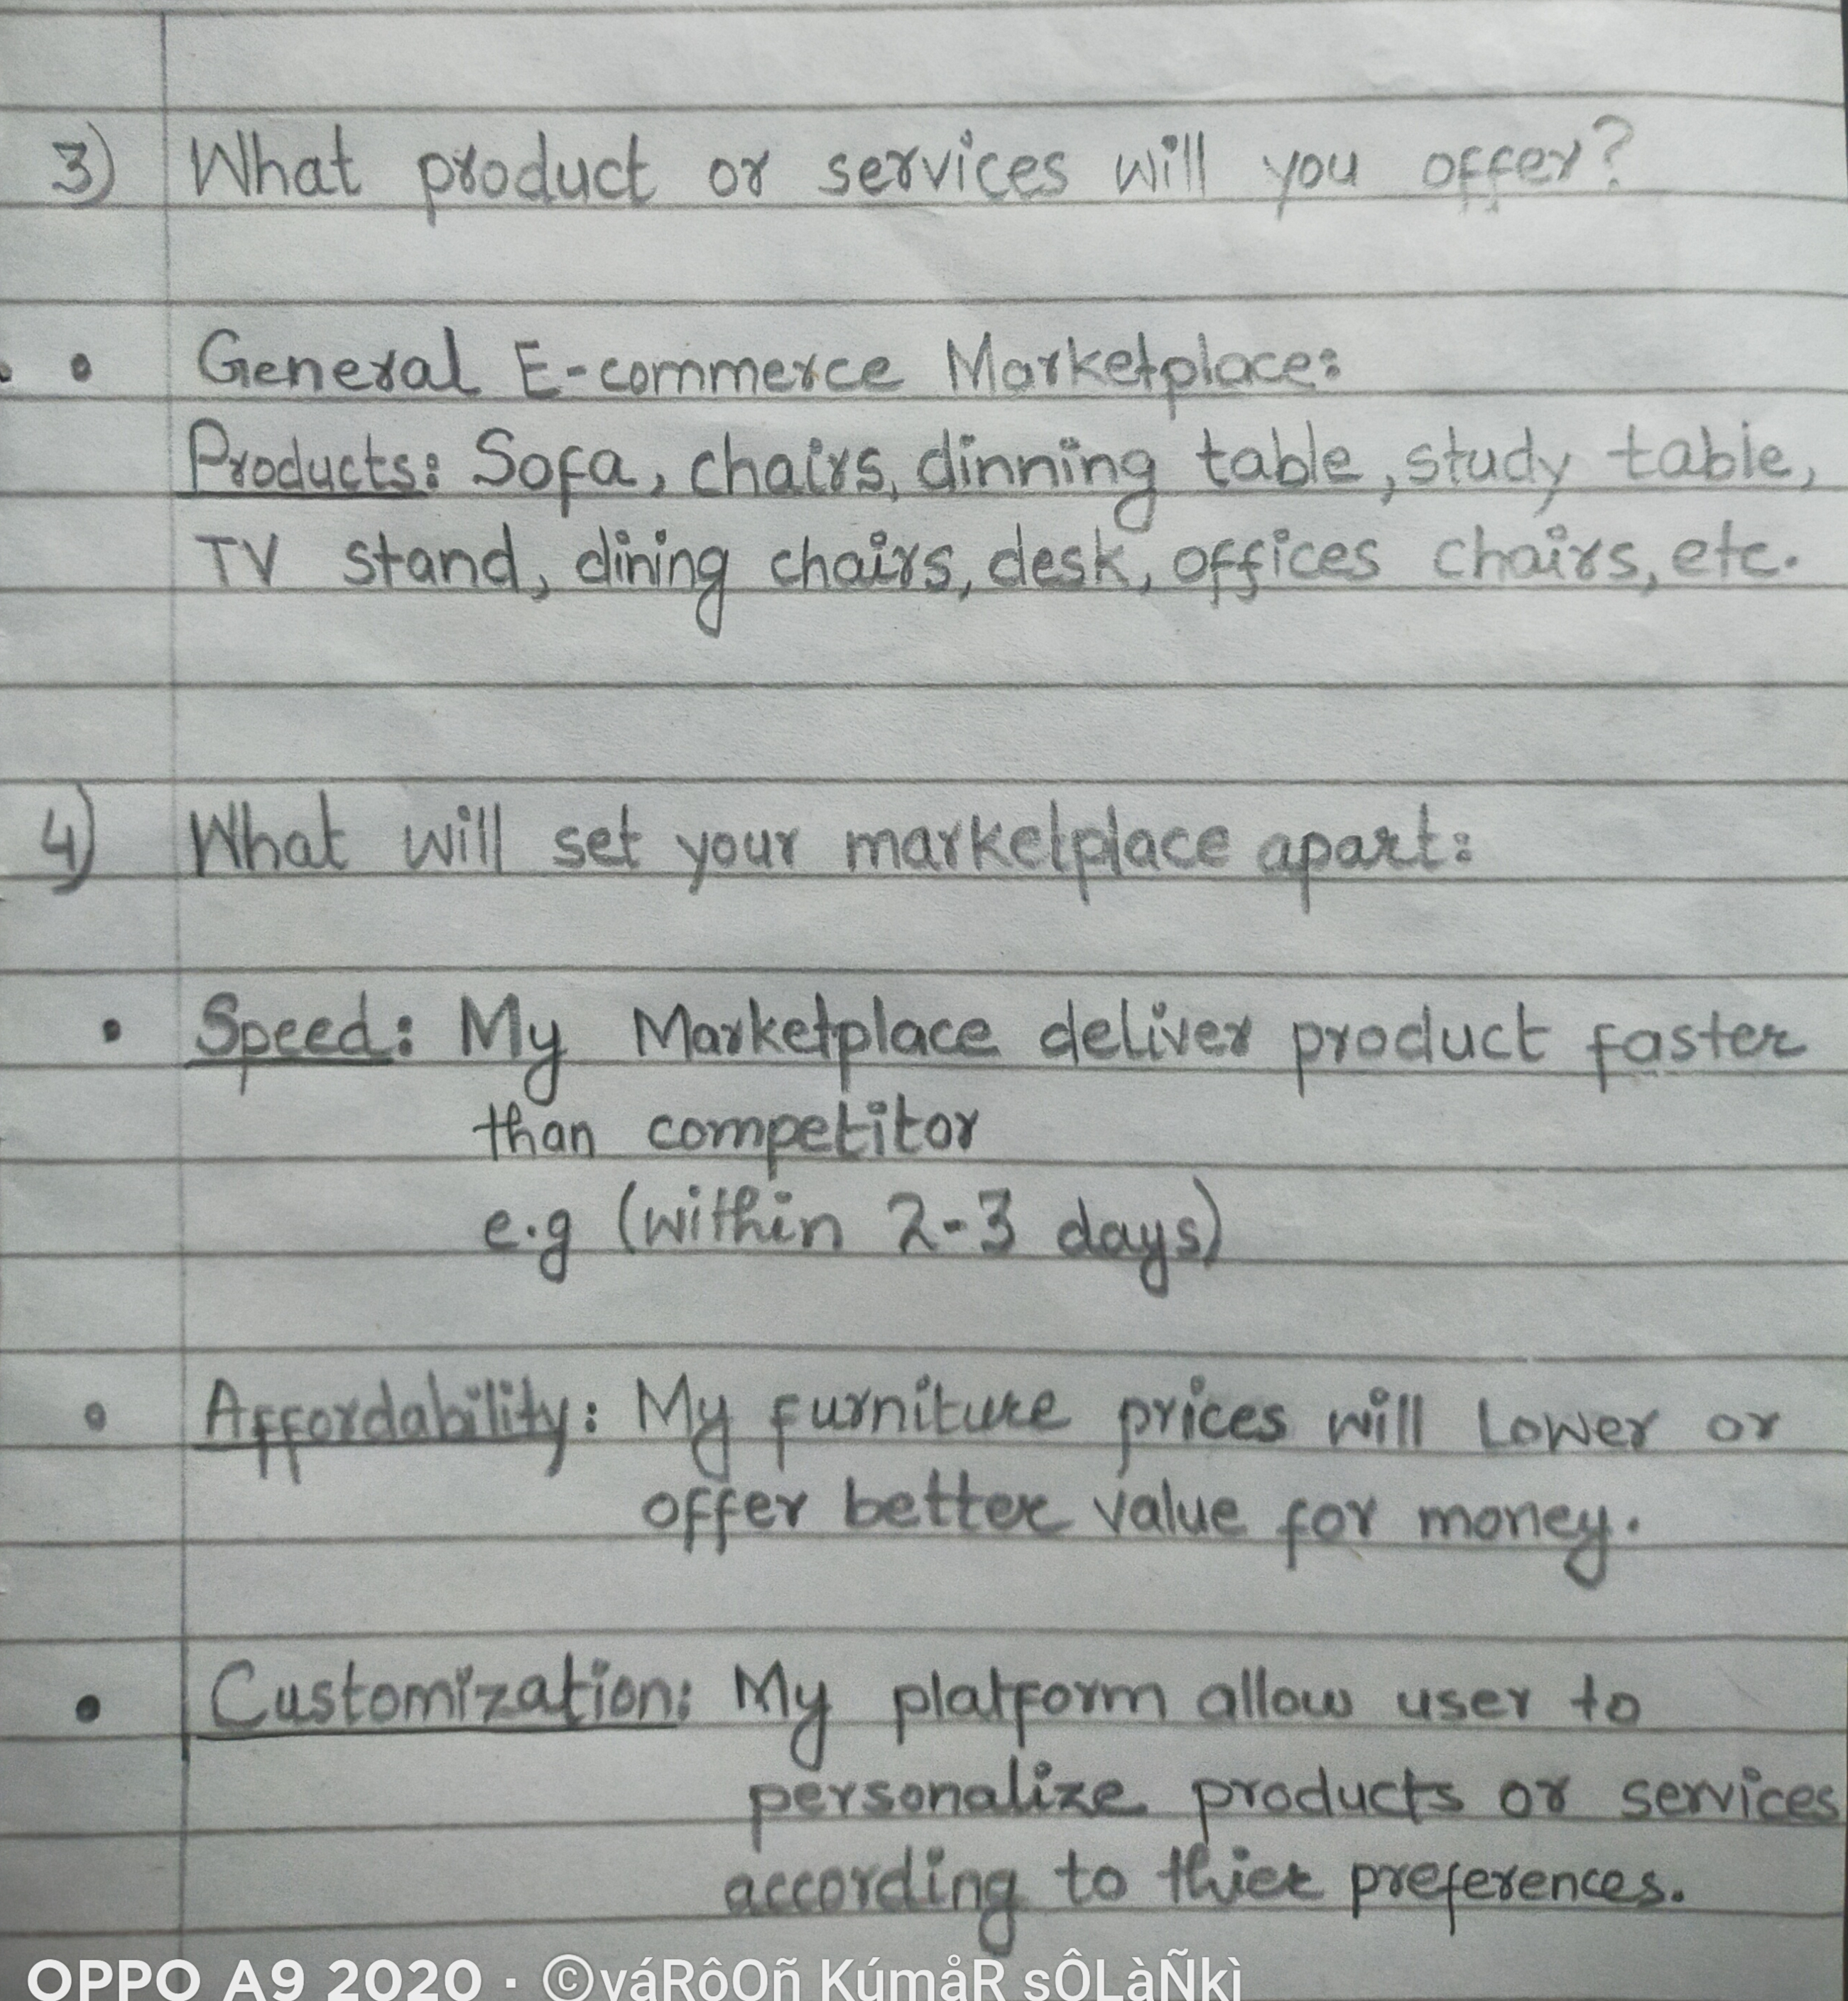 3) What product or services will you offer?
• General E-commerce Marketplace:
Products: Sofa, chairs, dinning table, study table,
TV stand, dining chairs, desk, offices chairs, etc.
4) What will set your marketplace apart:
• Speed: My Marketplace deliver product faster
than competitor
e.g (within 2-3 days)
• Affordability: My furniture prices will Lower or
offer better value for money.
• Customization: My platform allow user to
personalize products or services
according to thier preferences.
OPPO A9 2020 · ©váRôOñ KúmåR sÔLàÑkì